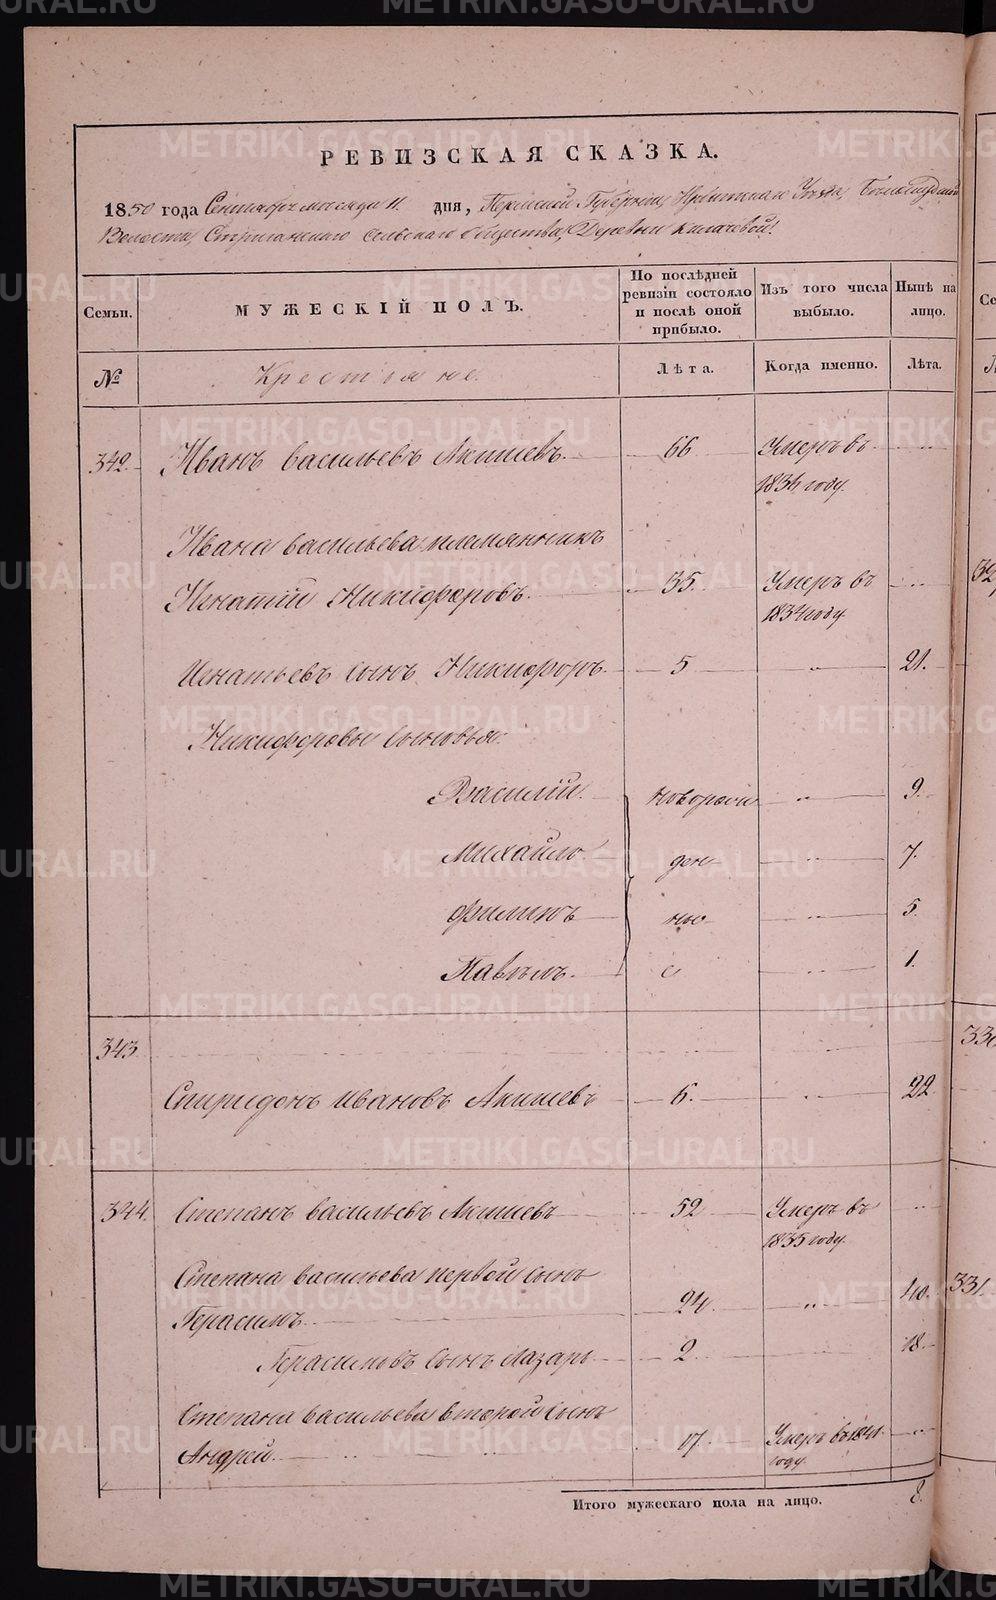 РЕВИЗСКАЯ СКАЗКА.
1850 года Сентября месяца 11. дня, Пермской Губерніи, Ирбитскаго Уезда,
Волости, сельскаго общества, Деревни Килачевой.
Семьи. МУЖЕСКІЙ ПОЛЪ. По послѣдней ревизіи состояло и послѣ оной прибыло. Изъ того числа выбыло. Нынѣ на лицо.
№ Крестьяне. Лѣта. Когда именно. Лѣта.
342. Иванъ васильевъ Акишевъ 66 Умеръ въ
1836 году.
Ивана васильева племянникъ
Игнатій Никифоровъ. 35. Умеръ въ
1834 году
Игнатьевъ сынъ Никифоръ 5 " 21.
Никифоровы сыновья:
Василій новорож " 9.
Михайло ден " 7.
Филипъ ные " 5.
Павелъ. " 1.
343.
Спиридонъ ивановъ Акишевъ 6. " 22
344. Степанъ васильевъ Акишевъ 52 Умеръ въ
1835 году.
Степана васильева первой сынъ
Герасимъ 24. " 40.
Герасимовъ сынъ Лазарь 2 18
Степана васильева второй сынъ
Андрей 17. Умеръ въ 1841.
году.
Итого мужескаго пола на лицо. 8.
METRIKI.GASO-URAL.RU